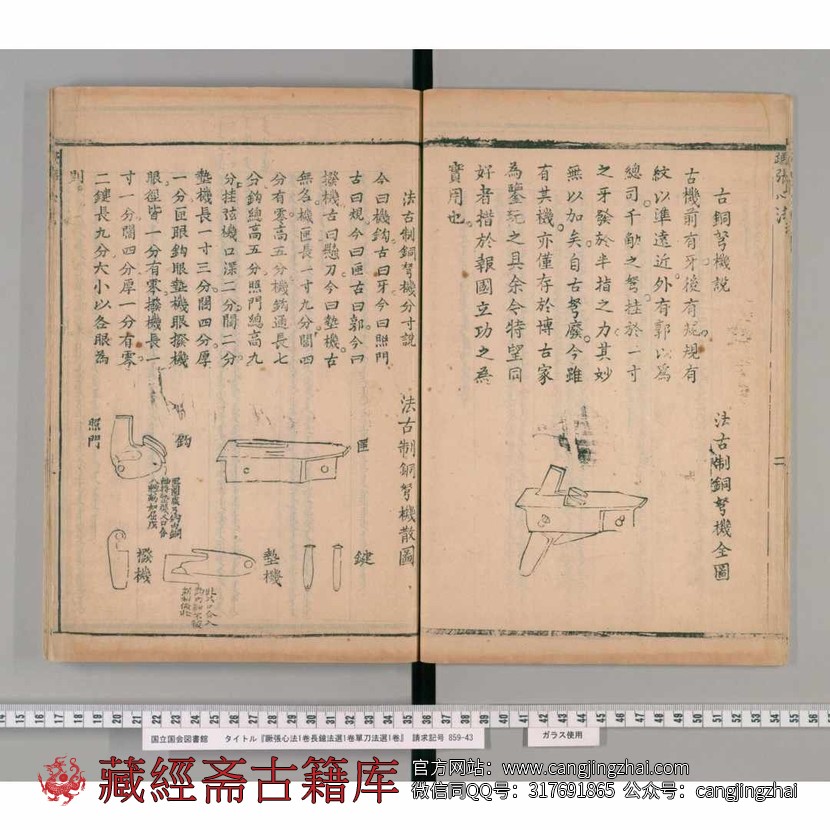 古銅弩機說
古機前有牙後有規規有
紋以準遠近外有郭以為
總司千觔之弩挂於一寸
之牙發於半指之力其妙
無以加矣自古弩廢今雖
有其機亦僅存於博古家
為鑒玩之具余今特望同
好者措於報國立功之為
實用也
法古制銅弩機全圖
二
法古制銅弩機分寸說
今曰機鈎古曰牙今曰照門
古曰規今曰匣古曰郭今曰
撥機古曰懸刀今曰墊機古
無名機匣長一寸九分闊四
分有零高五分機鈎通長七
分鈎總高五分照門總高九
分挂弦機口深二分闊二分
墊機長一寸三分闊四分厚
一分匣眼鈎眼墊機眼撥機
眼徑皆一分有零撥機長一
寸一分闊四分厚一分有零
二鍵長九分大小以各眼為
則
法古制銅弩機散圖
匣
鈎
照門
鍵
墊機
撥機
国立国会図書館 タイトル『蹶張心法1巻長鎗法選1巻單刀法選1巻』 請求記号 859-43
ガラス使用
藏經斋古籍库
官方网站：www.cangjingzhai.com
微信同QQ号：317691865 公众号：cangjingzhai